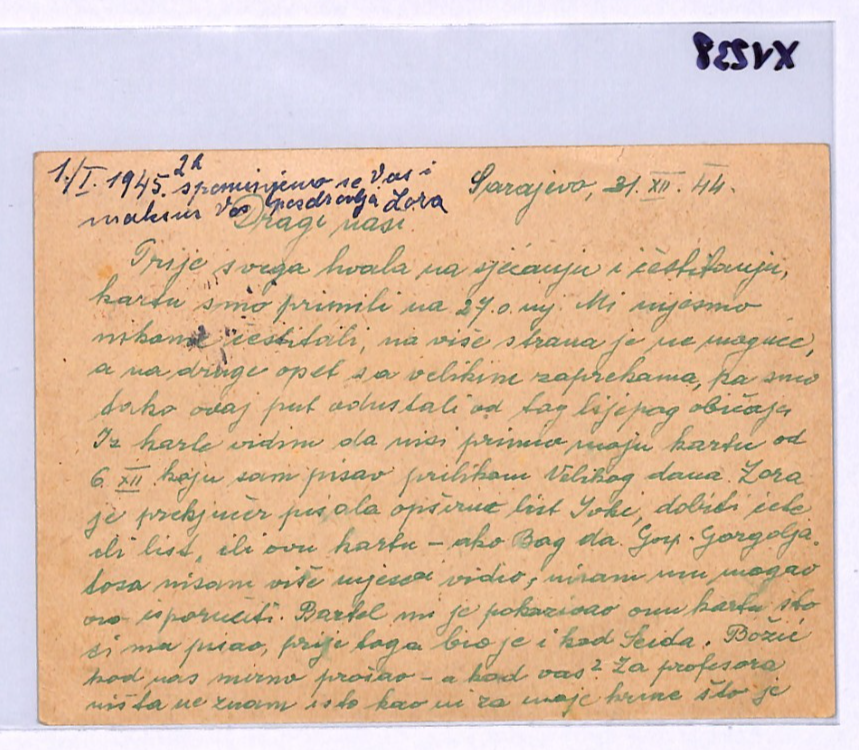 XV258
1./I. 1945. 2h spominjemo se Vas i
Vas pozdravlja Zora
Sarajevo, 31. XII. 44.
Dragi naši.
Prije svega hvala na sjećanju i čestitanju,
kartu smo primili na 27. o. mj. Mi nijesmo
nikome čestitali, na više strana je ne moguće,
a na druge opet sa velikim zaprekama, pa smo
tako ovaj put odustali od tog lijepog običaja
Iz karte vidim da nisi primio moju kartu od
6. XII koju sam pisao prilikom Velikog dana. Zora
je prekjučer pisala opširni list Joki, dobiti ćete
ili list, ili ovu kartu – ako Bog da. Gosp.
nisam više mjeseci vidio, nisam mu mogao
ovo isporučiti. Bartol mi je pokazivao onu kartu što
si mu pisao, prije toga bio je i kod Seida. Božić
kod nas mirno prošao – a kod vas? Za profesora
ništa ne znam isto kao ni za moje krme što je